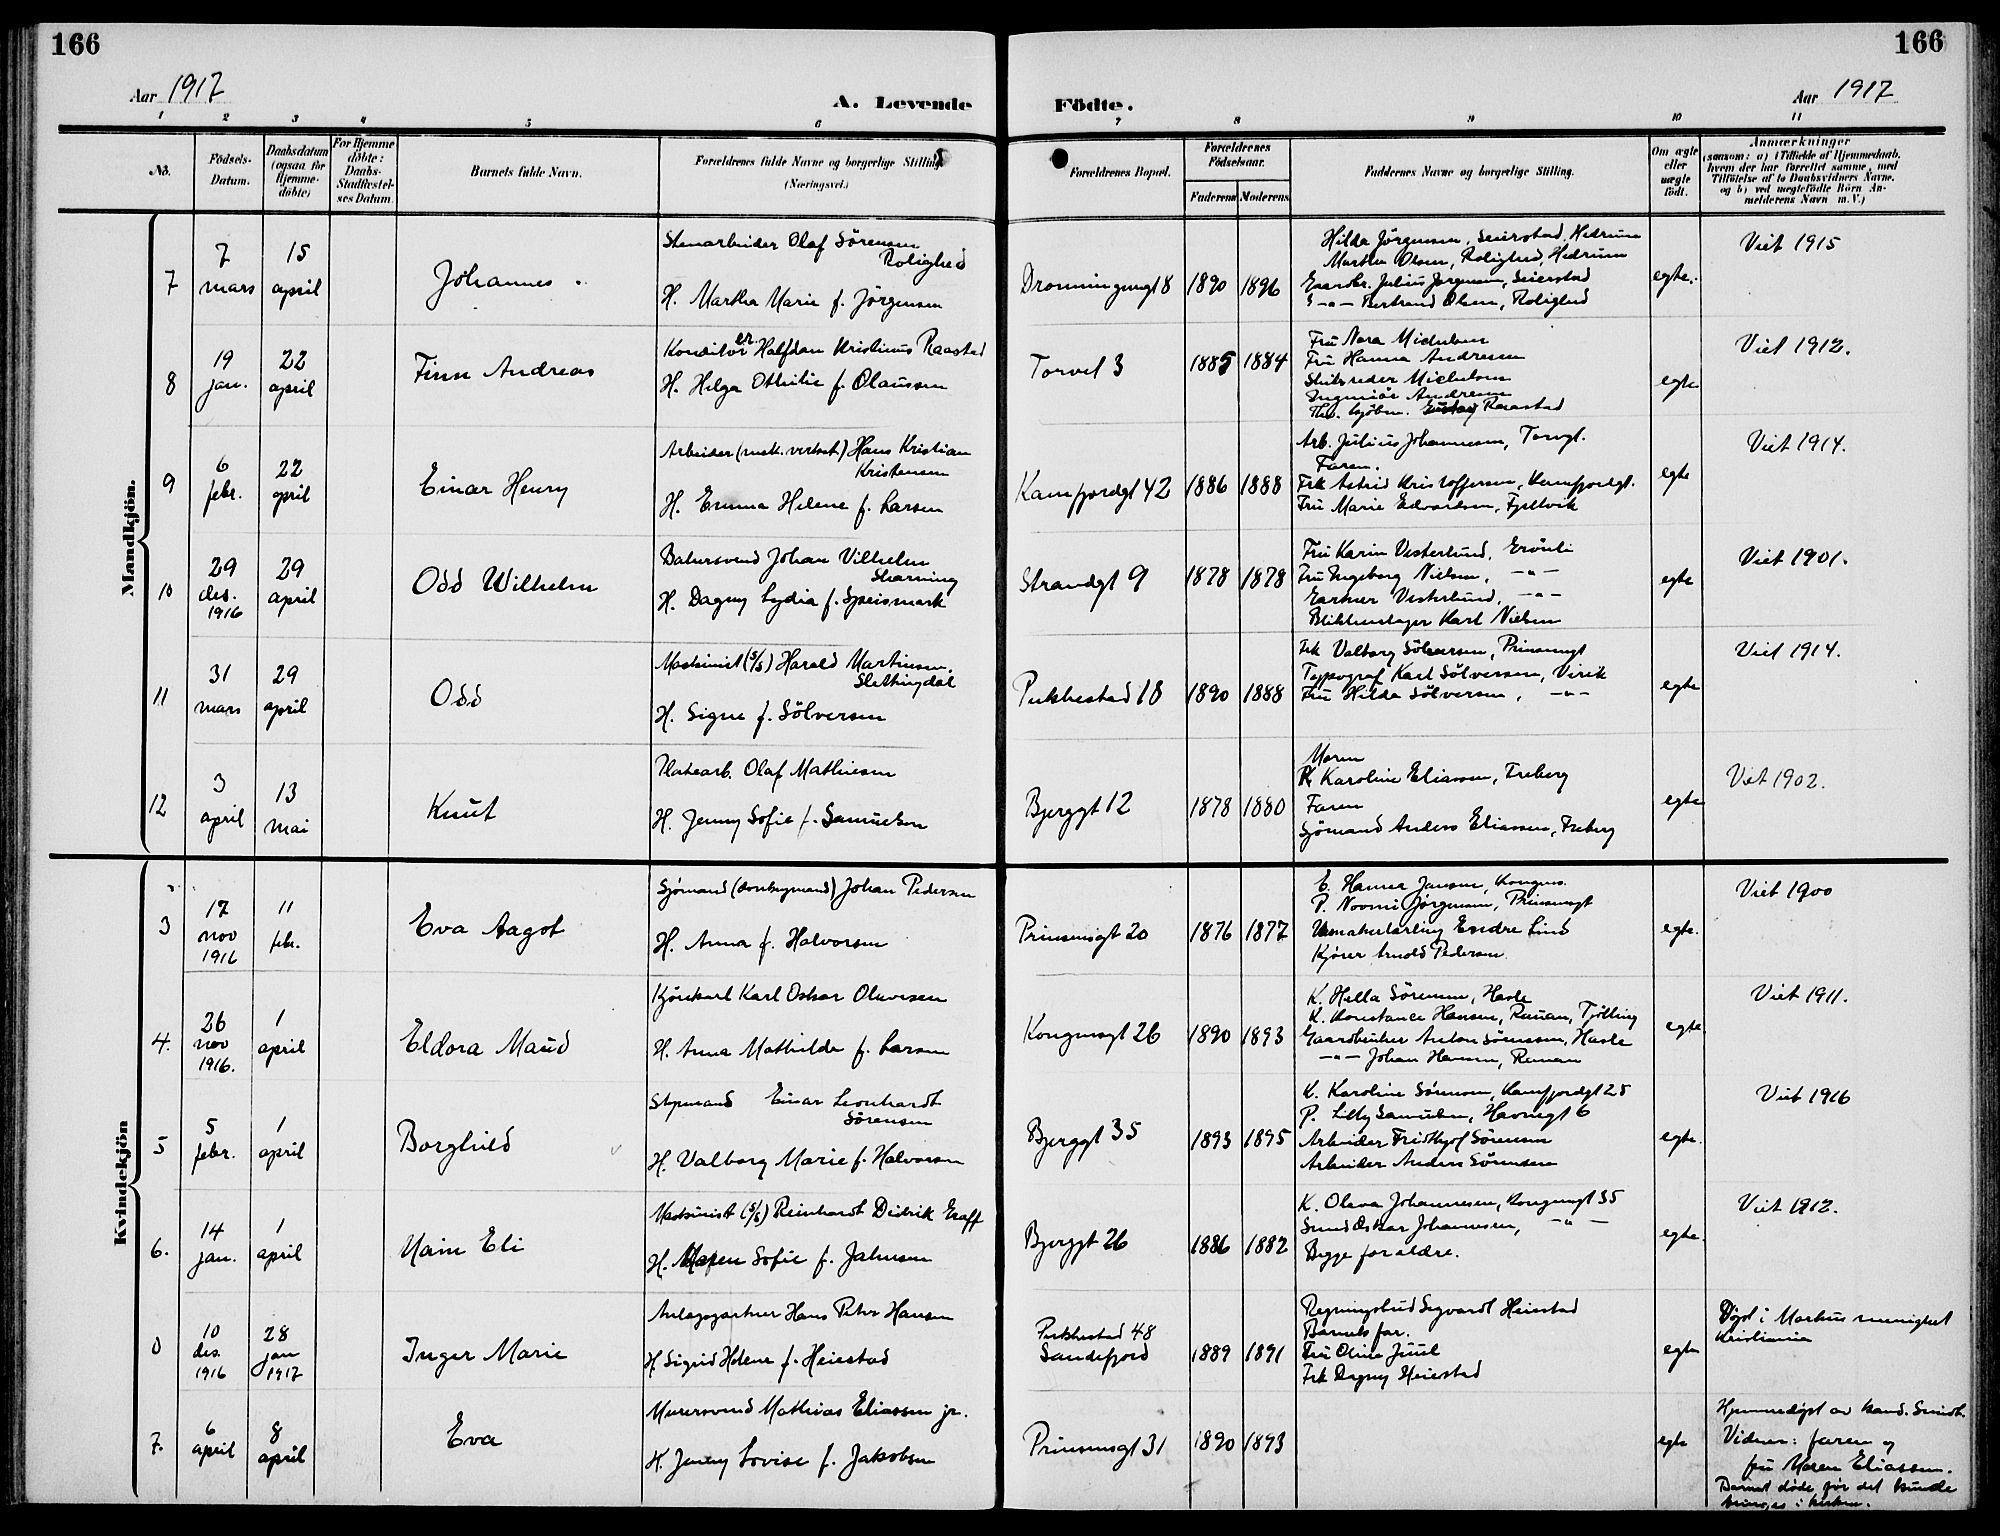 166
166
Aar 1917
A. Levende
Födte.
Aar 1917
1 2 3 4 5 6 7 8 9 10 11
No.
Födsels-Datum.
Daabsdatum (ogsaa for Hjemme-döbte)
For Hjemme döbte: Daabs-Stadfæstel-ses Datum.
Barnets fulde Navn.
Forældrenes fulde Navne og borgerlige Stilling
(Næringsvei.)
Forældrenes Bopæl.
Forældrenes Födselsaar.
Faderens
Moderens
Faddernes Navne og borgerlige Stilling.
Om ægte eller uægte födt.
Anmærkninger
(saasom: a) i Tilfælde af Hjemmedaab, hvem der har forrettet samme, med Tilföielse af to Daabsvidners Navne, og b) ved uægtefödte Börn An-melderens Navn m.V.)
Mandkjön.
7
7 mars
15 april
Johannes
Stenarbeider Olaf Sörensen
Rolighed
H. Martha Marie f. Jörgensen
Dronningensgt 8
1890
1896
Hilda Jörgensen, Seierstad, Hedrum
Martha Olsen, Rolighed, Hedrum
Gaardbr. Julius Jörgensen, Seierstad
-"- Bertrand Olsen, Rolighed
egte.
Viet 1915
8
19 jan.
22 april
Finn Andreas
Konditor Halfdan Kristinus Raastad
H. Helga Othilie f. Olaussen
Torvet 3
1885
1884
Fru Nora Michelsen
Fru Hanna Andresen
Skibsreder Michelsen
Ingeniör Andresen
Raastad
egte
Viet 1912.
9
6 febr.
22 april
Einar Henry
Arbeider (mek. verkst.) Hans Kristian
Kristensen
H. Emma Helene f. Larsen
Kamfjordgt 42
1886
1888
Arb. Julius Johannesen, Torvgt.
Faren.
Frk Astrid Kristoffersen, Kamfjordgt.
Fru Marie Edvardsen, Fjellvik
egte
Viet 1914.
10
29 des. 1916
29 april
Odd Wilhelm
Bakersvend Johan Vilhelm
Skarning
H. Dagny Lydia f. Speismark
Strandgt 9
1878
1878
Fru Karin Vesterlund,
Fru Ingeborg Nielsen, -"-
Gartner Vesterlund, -"-
Blikkenslager Karl Nielsen
egte
Viet 1901.
11
31 mars
29 april
Odd
Maskinist (S/S) Harald Martinsen
Slettingdal
H. Signe f. Sölversen
Pukkestad 18
1890
1888
Frk Valborg Sölversen, Prinsensgt
Typograf Karl Sölversen, Virik
Fru Hilda Sölversen, -"-
egte
Viet 1914.
12
3 april
13 mai
Knut
Platearb. Olaf Mathiesen
H. Jenny Sofie f. Samuelsen
Bjerggt 12
1878
1880
Moren
K Karoline Eliassen, Freberg
Faren
Sjömand Anders Eliassen, Freberg
egte
Viet 1902.
Kvindekjön
3
17 nov 1916
11 febr.
Eva Aagot
Sjömand (donkeymand) Johan Pedersen
H. Anna f. Halvorsen
Prinsensgt 20
1876
1877
E. Hanna Jansen, Kongens.
P. Noomi Jörgensen, Prinsensgt
Urmakerlærling Endre Lind
Kjörer Arnold Pedersen
egte.
Viet 1900
4.
26 nov 1916.
1 april
Eldora Maud
Kjörekarl Karl Oskar Olavesen
H. Anna Mathilde f. Larsen
Kongensgt 26
1890
1893
K. Hella Sörensen, Hasle
K. Konstance Hansen, Rauan, Tjölling
Gaardbruker Anton Sörensen, Hasle
-"- Johan Hansen, Rauan
egte
Viet 1911.
5
5 febr.
1 april
Borghild
Styrmand Einar Leonhardt
Sörensen
H. Valborg Marie f. Halvorsen
Bjerggt 35
1893
1895
K. Karoline Sörensen, Kamfjordgt 25
P. Lilly Samuelsen, Havnegt 6
Arbeider Fridthjof Sörensen
Arbeider Anders Sörensen
egte.
Viet 1916
6.
14 jan.
1 april
Main Eli
Maskinist (S/S) Reinhardt Didrik Graff
H. Maren Sofie f. Jahnsen
Bjerggt 26
1886
1882
K. Oleva Johannesen, Kongensgt 35
Smed Oskar Johannesen, -"-
Begge foræld​re.
egte.
Viet 1912.
0
10 des. 1916
28 jan 1917
Inger Marie
Anlægsgartner Hans Peter Hansen
H Sigrid Helene f. Heiestad
Pukkestad 48
Sandefjord
1889
1891
Regningsbud Sigvardt Heiestad
Barnets far.
Fru Oline Juul
Frk Dagny Heiestad
egte
Döpt i Markus menighet
Kristiania
7.
6 april
8 april
Eva
Murersvend Mathias Eliassen jr.
H. Jenny Lovise f. Jakobsen
Prinsensgt 31
1890
1893
egte
Hjemmedöpt av kand. Smidt.
Vidner: faren og
fru Maren Eliassen.
Barnet döde för det kunde
bringes i kirken.